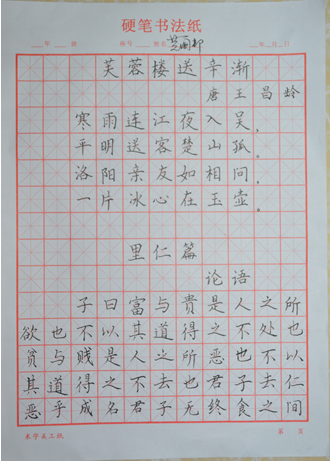 硬笔书法纸
年 班 座号 姓名 年 月 日
芙蓉楼送辛渐
唐 王昌龄
寒雨连江夜入吴，
平明送客楚山孤。
洛阳亲友如相问，
一片冰心在玉壶。
里仁篇
论语
子曰富与贵是人之所
欲也不以其道得之不处也
贫与贱是人之所恶也不以
其道得之不去也君子去仁
恶乎成名君子无终食之间
页